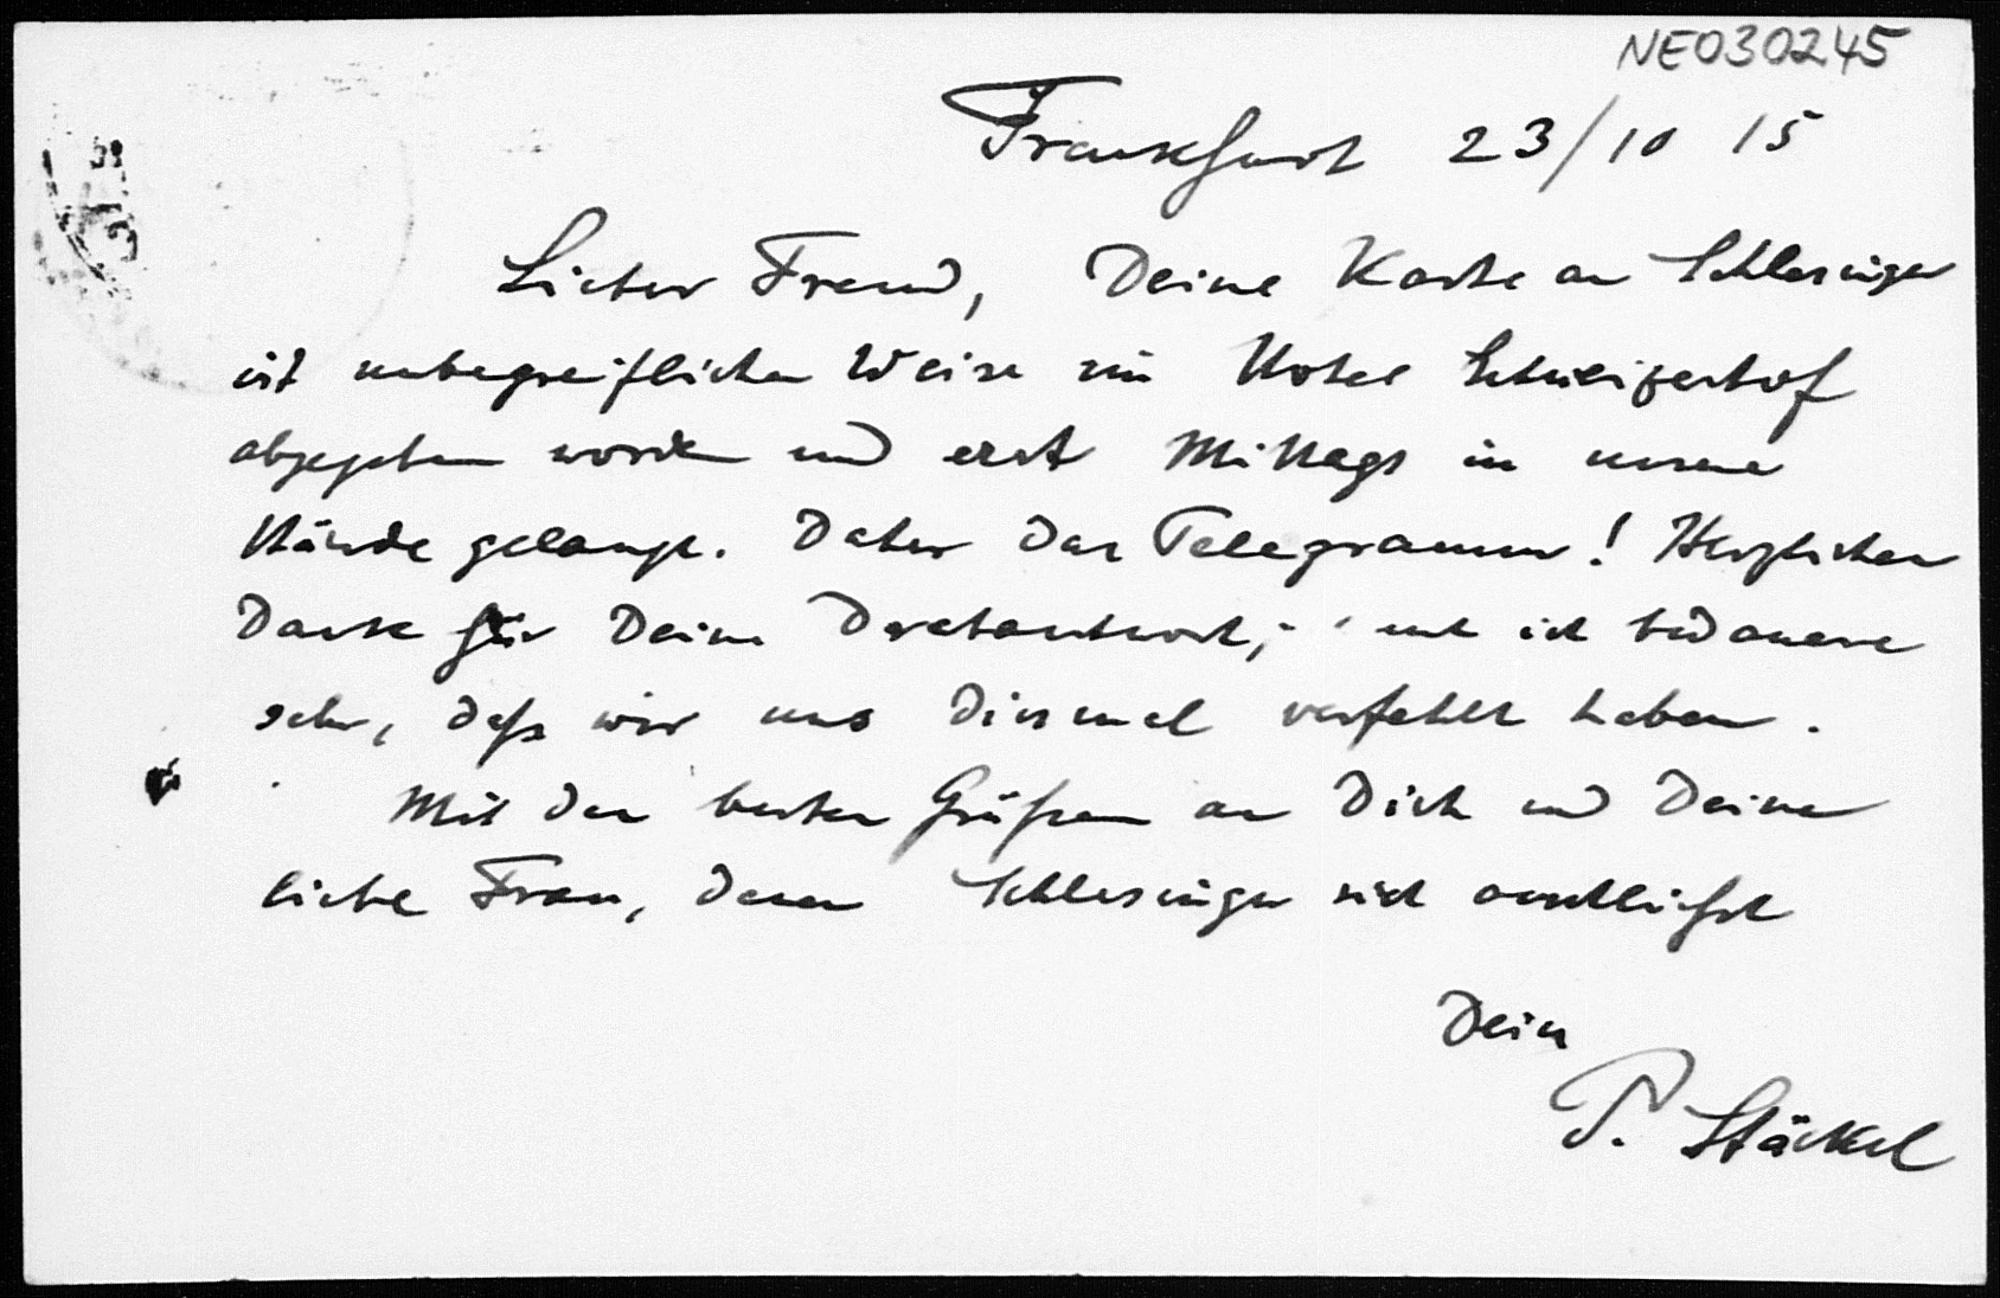 NE030245
Frankfurt 23/10 15
Lieber Freund, Deine Karte an Schlesinger
ist unbegreiflicher Weise im Hotel Schweizerhof
abgegeben worden und erst Mittags in unsere
Hände gelangt. Daher das Telegramm! Herzlichen
Dank für Deine Drahtantwort; ich bedauere
sehr, daß wir uns diesmal verfehlt haben.
Mit den besten Grüßen an Dich und Deine
liebe Frau, denen Schlesinger sich anschließt
Dein
P. Stäckel